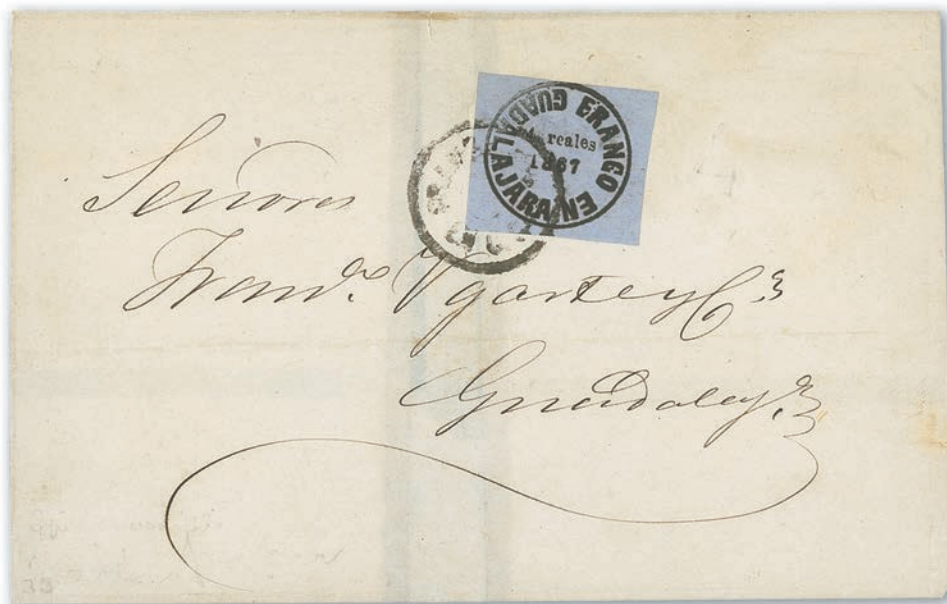 FRANCO EN GUADALAJARA
reales
1867
Señores
Franco. Ygarte y Ca
Guadalaja